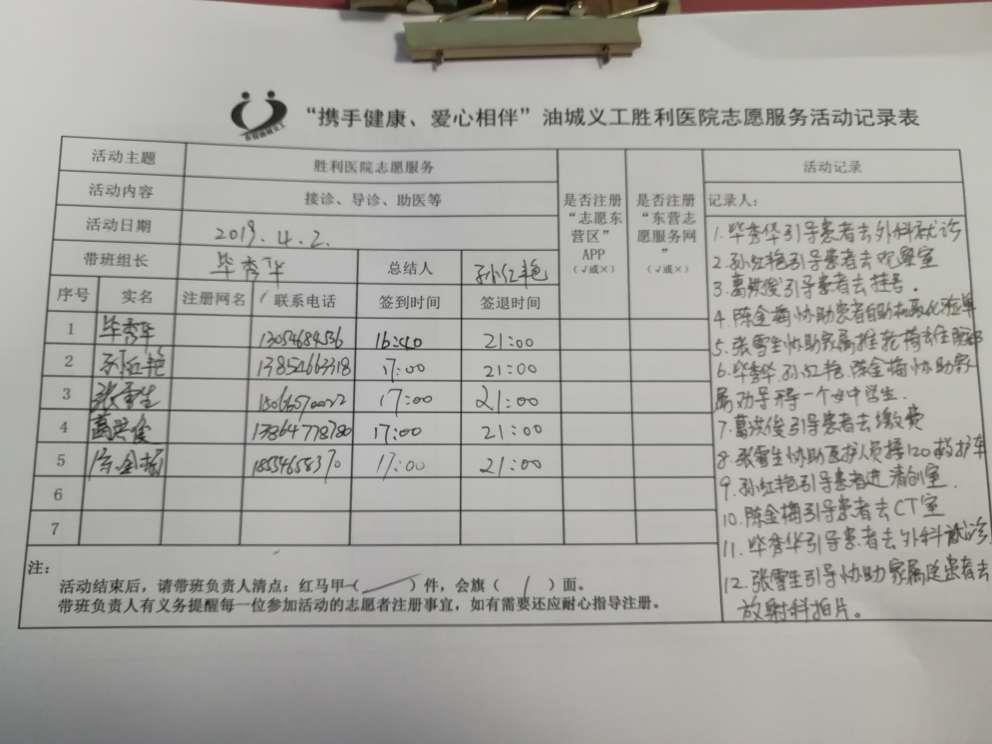 “携手健康、爱心相伴”油城义工胜利医院志愿服务活动记录表
活动主题 胜利医院志愿服务
活动内容 接诊、导诊、助医等
活动日期 2019.4.2.
带班组长 毕秀华 总结人 孙红艳
是否注册“志愿东营区”APP（√或×）
是否注册“东营志愿服务网”（√或×）
序号 实名 注册网名 联系电话 签到时间 签退时间
1 毕秀华 13054684556 16:40 21:00
2 孙红艳 13854663318 17:00 21:00
3 张雪生 17:00 21:00
4 葛洪俊 13864778780 17:00 21:00
5 陈金梅 18554658370 17:00 21:00
6
7
注：
活动结束后，请带班负责人清点：红马甲（ ）件，会旗（ 1 ）面。
带班负责人有义务提醒每一位参加活动的志愿者注册事宜，如有需要还应耐心指导注册。
活动记录
记录人：
1.毕秀华引导患者去外科就诊
2.孙红艳引导患者去观察室
3.葛洪俊引导患者去挂号.
4.陈金梅协助患者自助机取化验单
5.张雪生协助家属推轮椅去住院部
6.毕秀华.孙红艳.陈金梅协助家
属劝导 一个女中学生.
7.葛洪俊引导患者去缴费
8.张雪生协助医护人员接120救护车
9.孙红艳引导患者进清创室.
10.陈金梅引导患者去CT室
11.毕秀华引导患者去外科就诊
12.张雪生引导协助家属送患者去
放射科拍片。